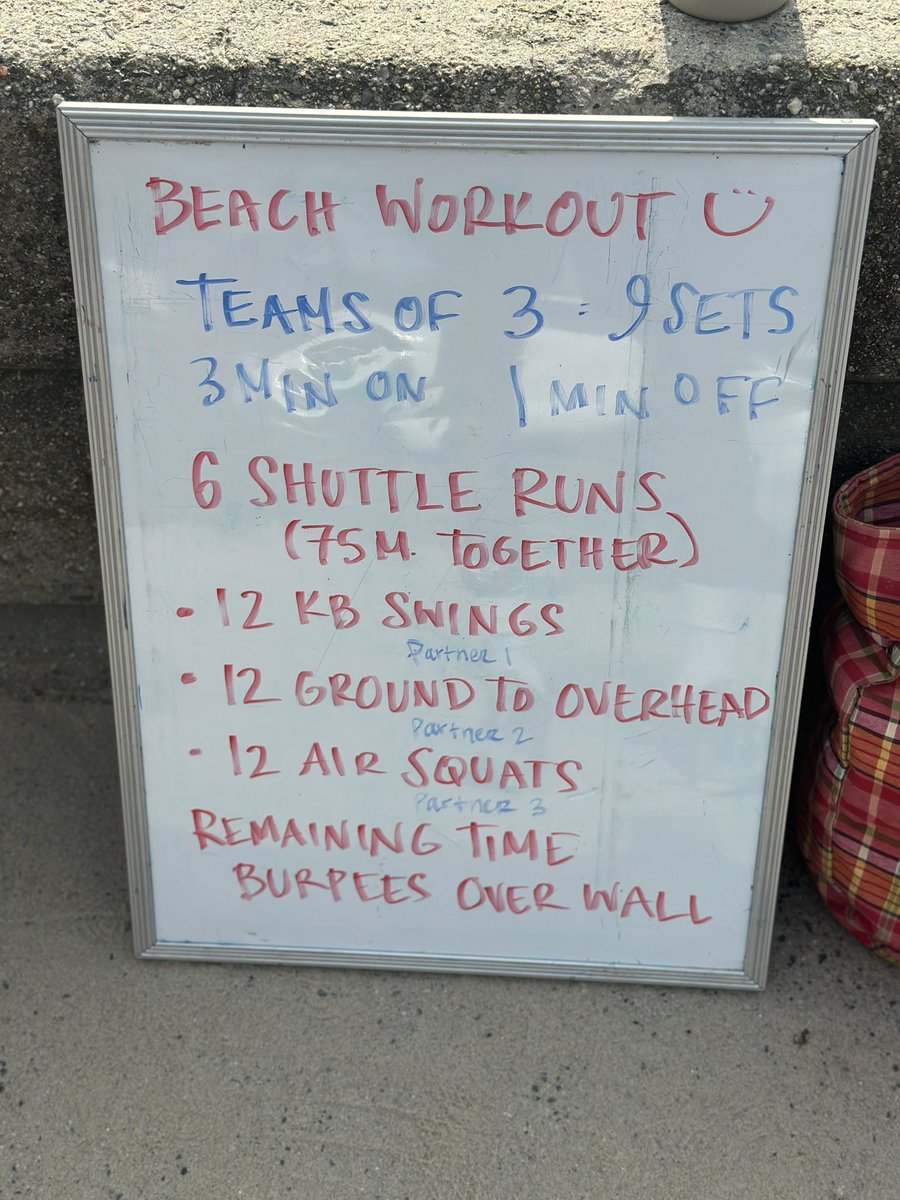 BEACH WORKOUT
TEAMS OF 3 - 9 SETS
3 MIN ON 1 MIN OFF
6 SHUTTLE RUNS
(75M. TOGETHER)
• 12 KB SWINGS
Partner 1
• 12 GROUND TO OVERHEAD
Partner 2
• 12 AIR SQUATS
Partner 3
REMAINING TIME
BURPEES OVER WALL